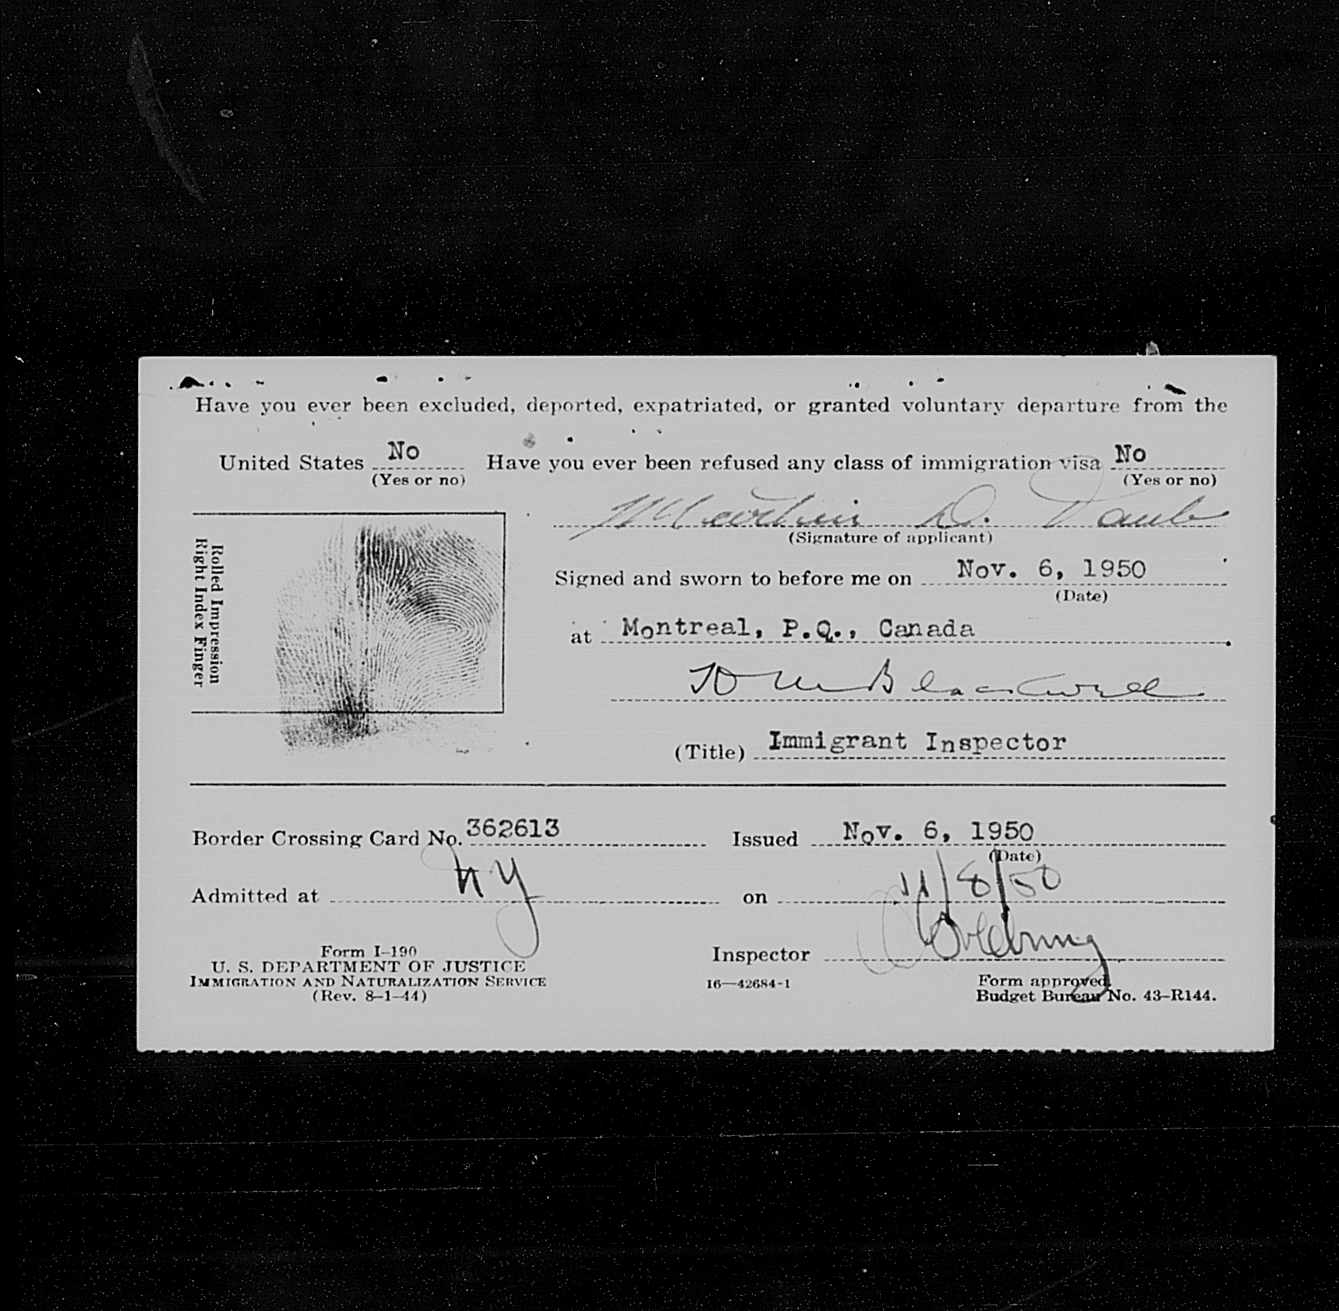 Have you ever been excluded, deported, expatriated, or granted voluntary departure from the
United States No Have you ever been refused any class of immigration visa No
(Yes or no) (Yes or no)
D. Taub
(Signature of applicant)
Signed and sworn to before me on Nov. 6, 1950
(Date)
at Montreal, P.Q., Canada
Blackwell
(Title) Immigrant Inspector
Rolled Impression
Right Index Finger
Border Crossing Card No. 362613 Issued Nov. 6, 1950
(Date)
Admitted at NY on 11/8/50
Inspector
Form I-190
U. S. DEPARTMENT OF JUSTICE
IMMIGRATION AND NATURALIZATION SERVICE
(Rev. 8-1-44)
16—42684-1
Form approved.
Budget Bureau No. 43-R144.